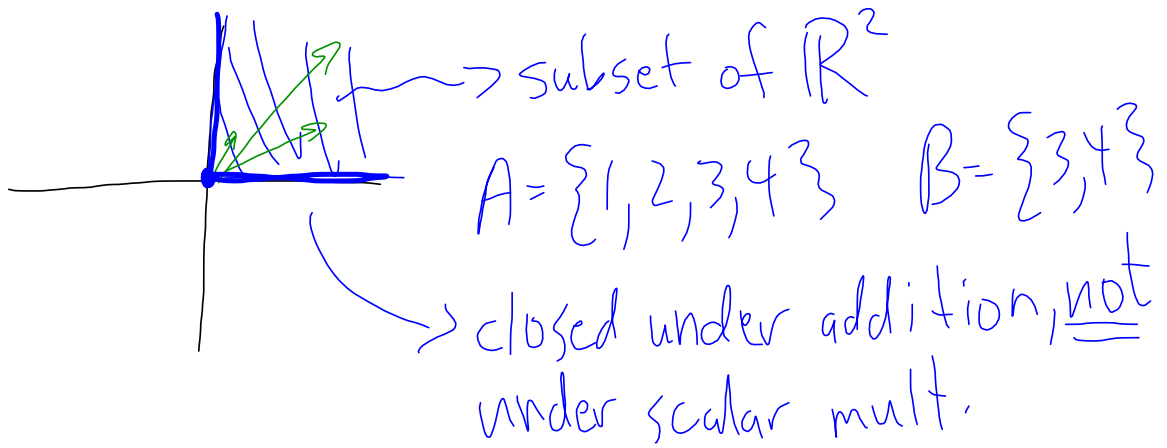 subset of ℝ²
A = {1, 2, 3, 4} B = {3, 4}
closed under addition, not
under scalar mult.